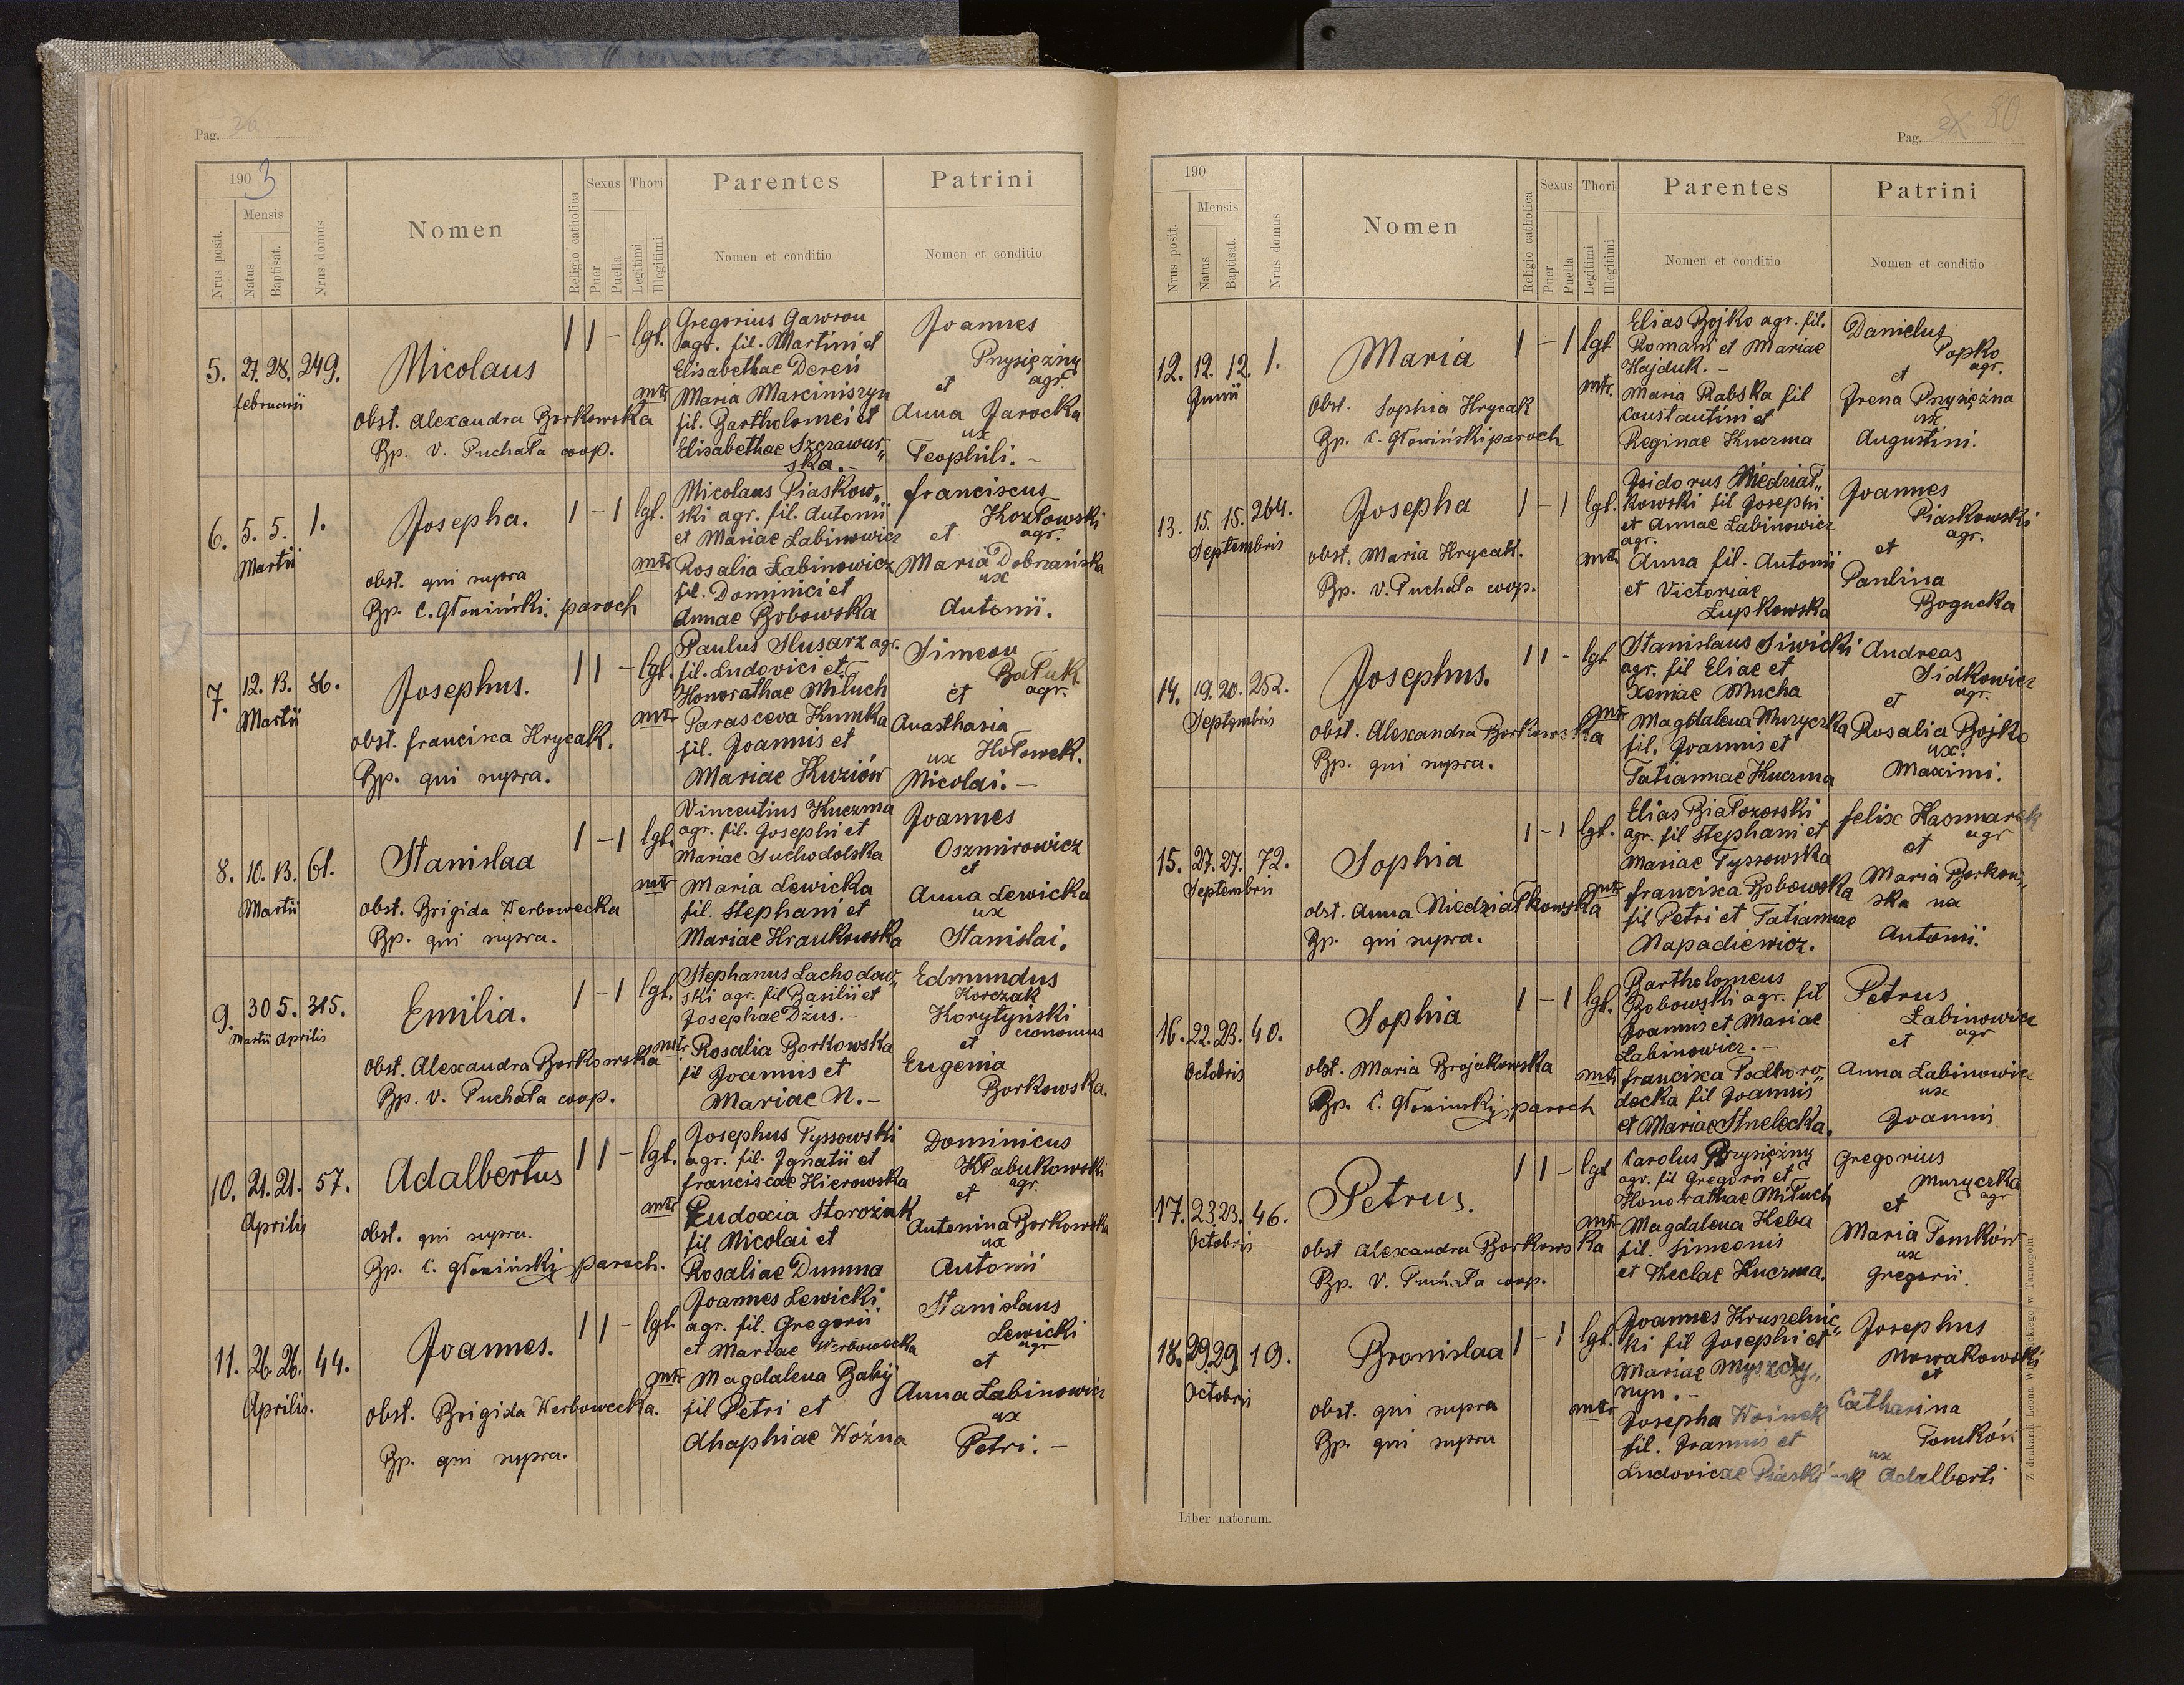 Pag.
190 3
Nrus posit.
Mensis
Natus
Baptisat.
Nrus domus
Nomen
Religio catholica
Sexus
Puer
Puella
Thori
Legitimi
Illegitimi
Parentes
Nomen et conditio
Patrini
Nomen et conditio
5. 27. 28. 249.
februarii
Micolaus
obst. Alexandra Borkowska
Bp. V. Puchała coop.
1 1 - lgt.
Gregorius Gawron
agr. fil. Martini et
Elisabethae Dereń
mtr Maria Marciniszyn
fil. Bartholomei et
Elisabethae Szczawur„
ska.-
Joannes
Przysiężny
et agr.
Anna Jarocka
ux
Teophili. -
6. 5. 5. 1.
Martii
Josepha.
obst. qui supra
Bp. C. Głowiński. paroch
1 - 1 lgt.
Micolaus Piaskow„
ski agr. fil. Antonii
et Mariae Łabinowicz
mtr Rosalia Łabinowicz
fil. Dominici et
Annae Bobowska
franciscus
Kozłowski
et agr.
Maria Dobrzańska
ux
Antonii.
7. 12. 13. 86.
Martii
Josephus.
obst. francisca Hrycak.
Bp. qui supra.
1 1 - lgt.
Paulus Slusarz agr.
fil. Ludovici et
Honorathae Miluch
mtr Parasceva Kumka
fil. Joannis et
Mariae Kuziów
Simeon
Batuk
et agr.
Anasthasia
ux Hołowek.
Nicolai. -
8. 10. 13. 61.
Martii
Stanislaa
obst. Brigida Werbowecka
Bp. qui supra.
1 - 1 lgt.
Vincentius Kuczma
agr. fil. Josephi et
Mariae Suchodolska
mtr Maria Lewicka
fil. Stephani et
Mariae Hrankowska
Joannes
Oszmirowicz
et
Anna Lewicka
ux
Stanislai.
9. 30 5. 315.
Martii Aprilis
Emilia.
obst. Alexandra Borkowska
Bp. V. Puchała coop.
1 - 1 lgt.
Stephanus Lachodow„
ski agr. fil Basilii et
Josephae Dżus. -
mtr Rosalia Borkowska
fil Joannis et
Mariae N. -
Edmundus
Korczak
Korytyński
et economus
Eugenia
Borkowska.
10. 21. 21. 57.
Aprilis
Adalbertus
obst. qui supra.
Bp. C. Głowiński paroch.
1 1 - lgt.
Josephus Tyssowski
agr. fil. Ignatii et
franciscae Hierowska
mtr Eudoxia Storożuk
fil Nicolai et
Rosaliae Dumma
Dominicus
Kłabukowski
et agr.
Antonina Borkowska
ux
Antonii
11. 26. 26. 44.
Aprilis.
Joannes.
obst. Brigida Werbowecka.
Bp. qui supra.
1 1 - lgt.
Joannes Lewicki
agr. fil. Gregorii
et Mariae Werbowecka
mtr Magdalena Babij
fil Petri et
Ahaphiae Woźna
Stanislaus
Lewicki
et agr
Anna Łabinowicz
ux
Petri. -
Pag. 80
190
Nrus posit.
Mensis
Natus
Baptisat.
Nrus domus
Nomen
Religio catholica
Sexus
Puer
Puella
Thori
Legitimi
Illegitimi
Parentes
Nomen et conditio
Patrini
Nomen et conditio
12. 12. 12. 1.
Junii
Maria
Obst. Sophia Hrycak
Bp. C. Głowiński paroch
1 - 1 lgt
Elias Bojko agr. fil.
Romani et Mariae
Hajduk. -
mtr. Maria Rabska fil
Constantini et
Reginae Kuczma
Danielus
Popko
et agr.
Irena Przysiężna
ux
Augustini.
13. 15. 15. 264.
Septembris
Josepha
obst. Maria Hrycak.
Bp. V. Puchała coop.
1 - 1 lgt.
Isidorus Niedział„
kowski fil Josephi
et Annae Łabinowicz
agr.
mtr Anna fil. Antonii
et Victoriae
Łupkowska
Joannes
Piaskowski
et agr.
Paulina
Bogucka
14. 19. 20. 252.
Septembris
Josephus.
obst. Alexandra Borkowska
Bp. qui supra.
1 1 - lgt
Stanislaus Siwicki
agr. fil Eliae et
Xeniae Mucha
mtr Magdalena Muzyczka
fil. Joannis et
Tatiannae Kuczma
Andreas
Sidkowicz
et agr.
Rosalia Bojko
ux.
Maximi.
15. 27. 27. 72.
Septembris
Sophia
obst. Anna Niedziałkowska
Bp. qui supra.
1 - 1 lgt.
Elias Białozorski
agr. fil Stephani et
Mariae Tyssowska
mtr francisca Bobowska
fil Petri et Tatiannae
Napadiewicz.
felix Kaczmarek
et agr
Maria Borkow„
ska ux
Antonii.
16. 22. 23. 40.
Octobris
Sophia
obst. Maria Brojakowska
Bp. C. Głowinski paroch
1 - 1 lgt.
Bartholomeus
Bobowski agr. fil
Joannis et Mariae
Łabinowicz. -
mtr francisca Podhoro„
decka fil Joannis
et Mariae Strzelecka.
Petrus
Łabinowicz
et agr
Anna Łabinowicz
ux
Joannis
17. 23. 23. 46.
Octobris
Petrus.
obst Alexandra Borkowska
Bp. V. Puchała coop.
1 1 - lgt
Carolus Przysiężny
agr. fil Gregorii et
Honorathae Miłuch
mtr Magdalena Keba
fil. Simeonis
et Theclae Kuczma.
Gregorius
Muzyczka
et agr
Maria Tomków
ux
Gregorii.
18. 29. 29. 19.
Octobris
Bronislaa
obst. qui supra
Bp. qui supra
1 - 1 lgt.
Joannes Kruszelnic„
ki fil Josephi et
Mariae Myszczy„
szyn. -
mtr Josepha Woinek
fil. Joannis et
Ludovicae
Josephus
Nowakowski
et
Catharina
Tomków
ux
Adalberti
Liber natorum.
Z drukarni Leona Wierzbickiego w Tarnopolu.